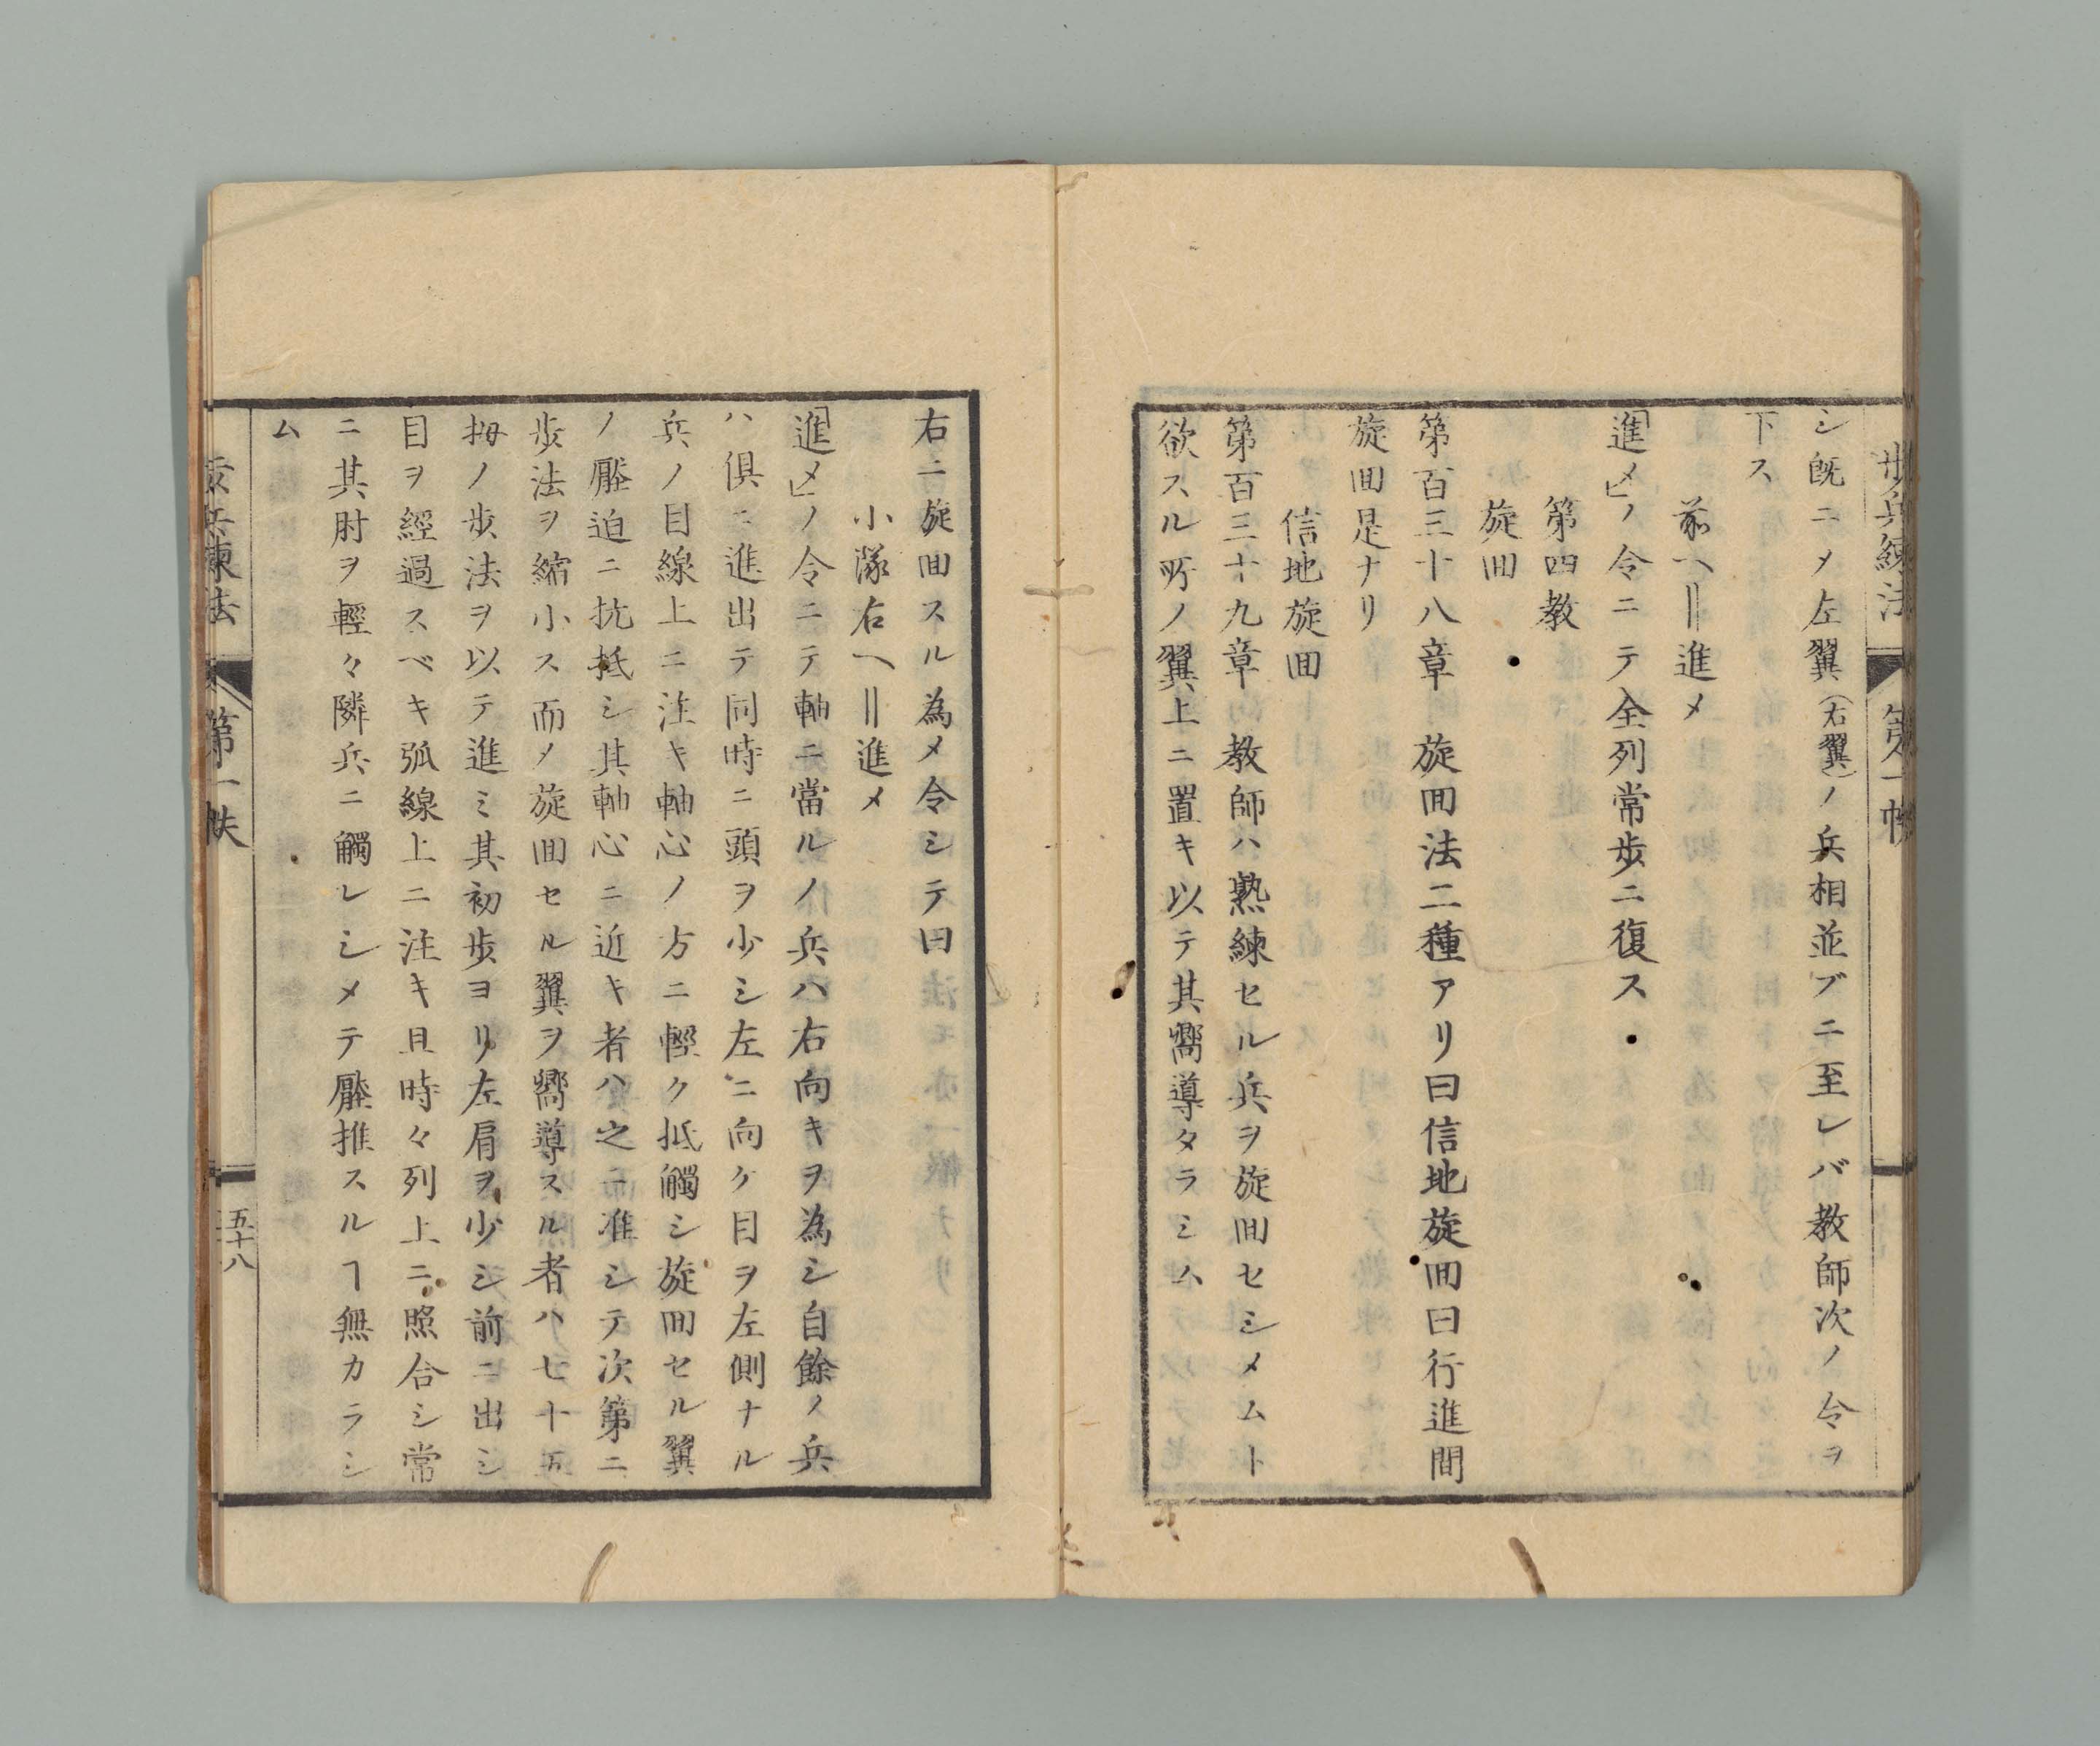 歩兵練法 第一帙
シ既ニメ左翼(右翼)ノ兵相並ブニ至レバ教師次ノ令ヲ
下ス
前へ‖進メ
「進メ」ノ令ニテ全列常歩ニ復ス
第四教
旋回
第百三十八章 旋回法二種アリ曰信地旋回曰行進間
旋回是ナリ
信地旋回
第百三十九章 教師ハ熟練セル兵ヲ旋回セシメムト
欲スル所ノ翼上ニ置キ以テ其嚮導タラシム
右ニ旋回スル為メ令シテ曰
小隊右へ‖進メ
「進メ」ノ令ニテ軸ニ當ルノ兵ハ右向キヲ為シ自餘ノ兵
ハ倶ニ進出テ同時ニ頭ヲ少シ左ニ向ケ目ヲ左側ナル
兵ノ目線上ニ注キ軸心ノ方ニ輕ク抵觸シ旋回セル翼
ノ壓迫ニ抗抵シ其軸心ニ近キ者ハ之ニ准シテ次第ニ
歩法ヲ縮小ス而メ旋回セル翼ヲ嚮導スル者ハ七十五
拇ノ歩法ヲ以テ進ミ其初歩ヨリ左肩ヲ少シ前ニ出シ
目ヲ經過スベキ弧線上ニ注キ且時々列上ニ照合シ常
ニ其肘ヲ輕々隣兵ニ觸レシメテ壓推スルヿ無カラシ
ム
歩兵練法 第一帙 五十八